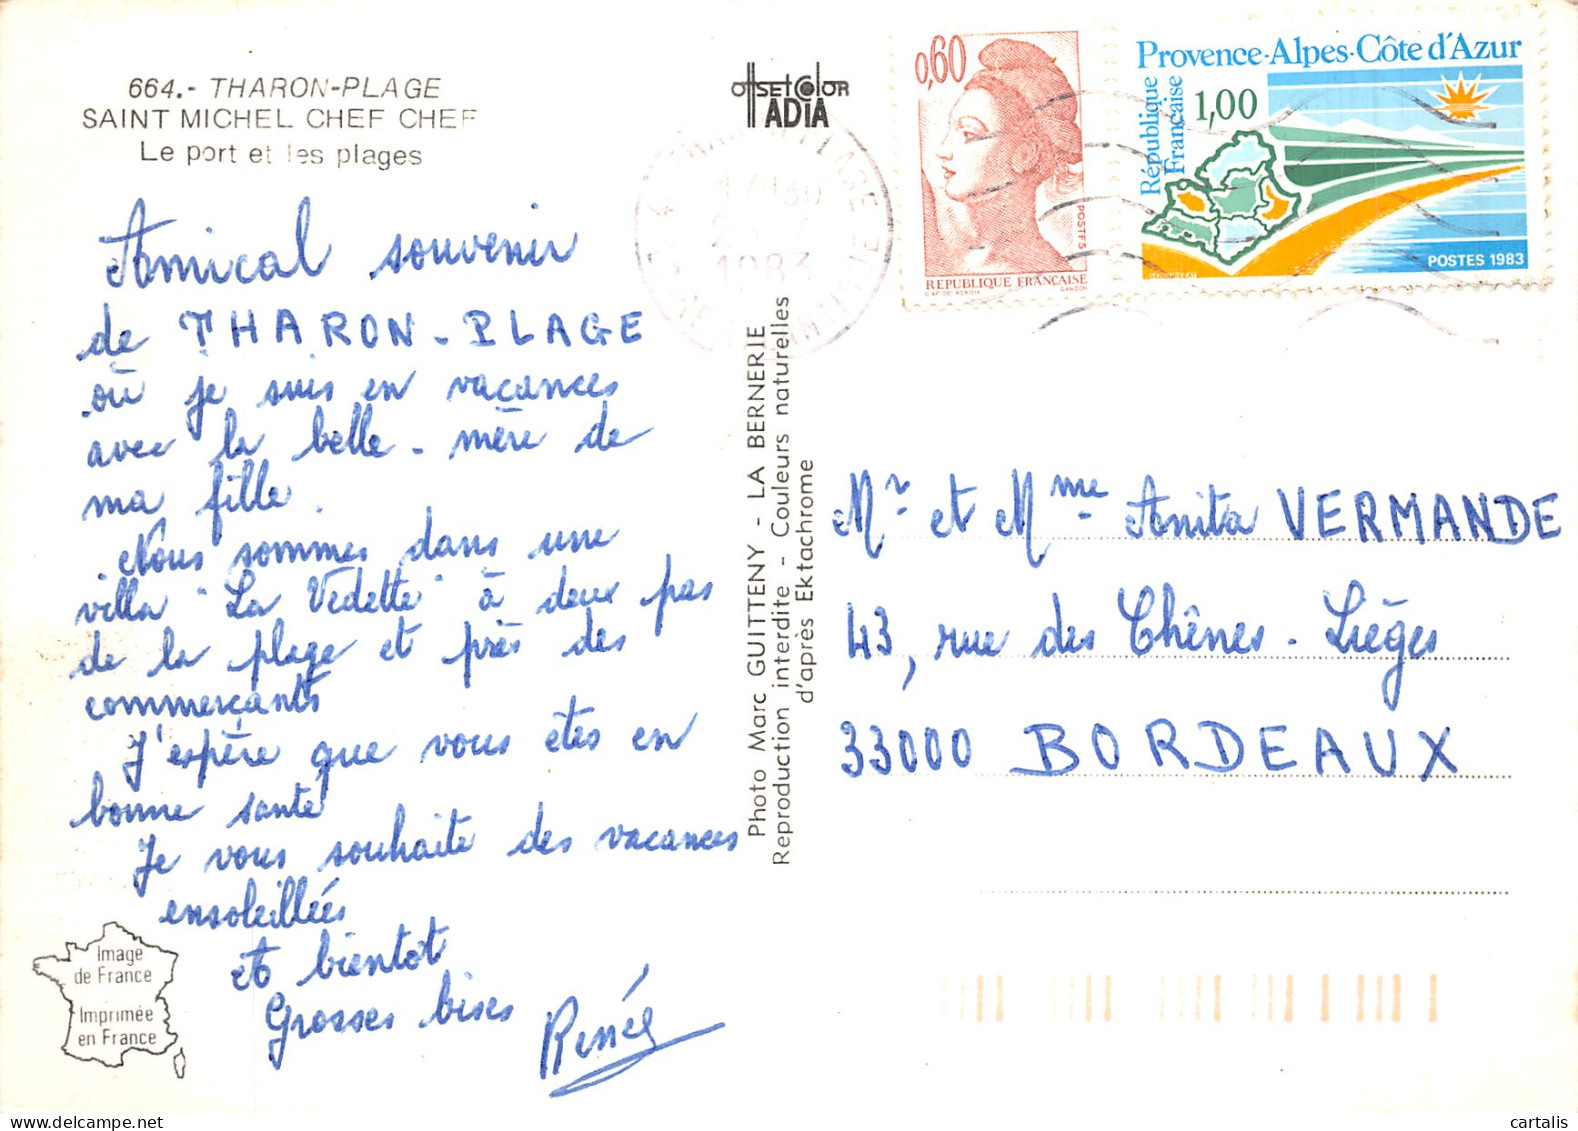 664.- THARON-PLAGE
SAINT MICHEL CHEF CHEF
Le port et les plages
offset color
ADIA
Amical souvenir
de THARON-PLAGE
où je suis en vacances
avec la belle-mère de
ma fille.
Nous sommes dans une
villa "La Vedette" à deux pas
de la plage et près des
commerçants
J'espère que vous êtes en
bonne santé
Je vous souhaite des vacances
ensoleillées
et à bientot
Grosses bises
Renée
Image
de France
Imprimée
en France
Photo Marc GUITTENY - LA BERNERIE
Reproduction interdite - Couleurs naturelles
d'après Ektachrome
1983
0,60
POSTES
REPUBLIQUE FRANÇAISE
GANDON
Provence-Alpes-Côte d'Azur
République
Française
1,00
POSTES 1983
Mr et Mme Anita VERMANDE
43, rue des Chênes-Lièges
33000 BORDEAUX
cartalis